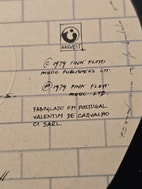 HARVEST
© 1979 PINK FLOYD
MUSIC PUBLISHERS LTD.
℗ 1979 PINK FLOYD
MUSIC LTD.
FABRICADO EM PORTUGAL
VALENTIM DE CARVALHO
CI SARL.